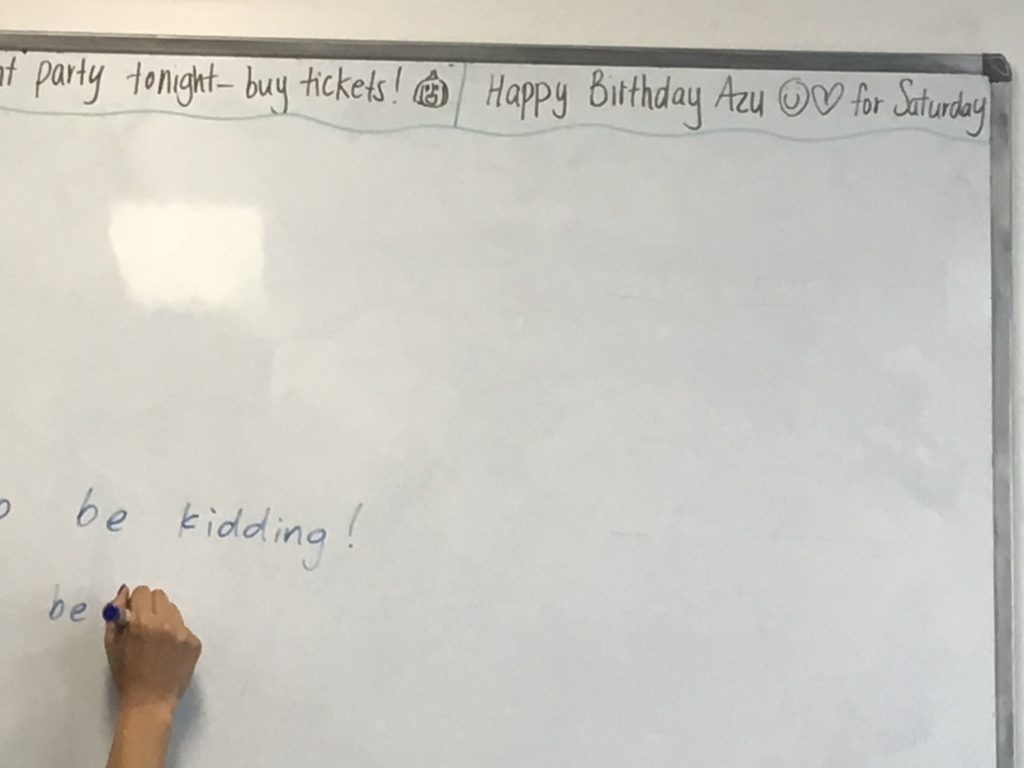 party tonight- buy tickets!
Happy Birthday Azu ☺♡ for Saturday
be kidding!
be